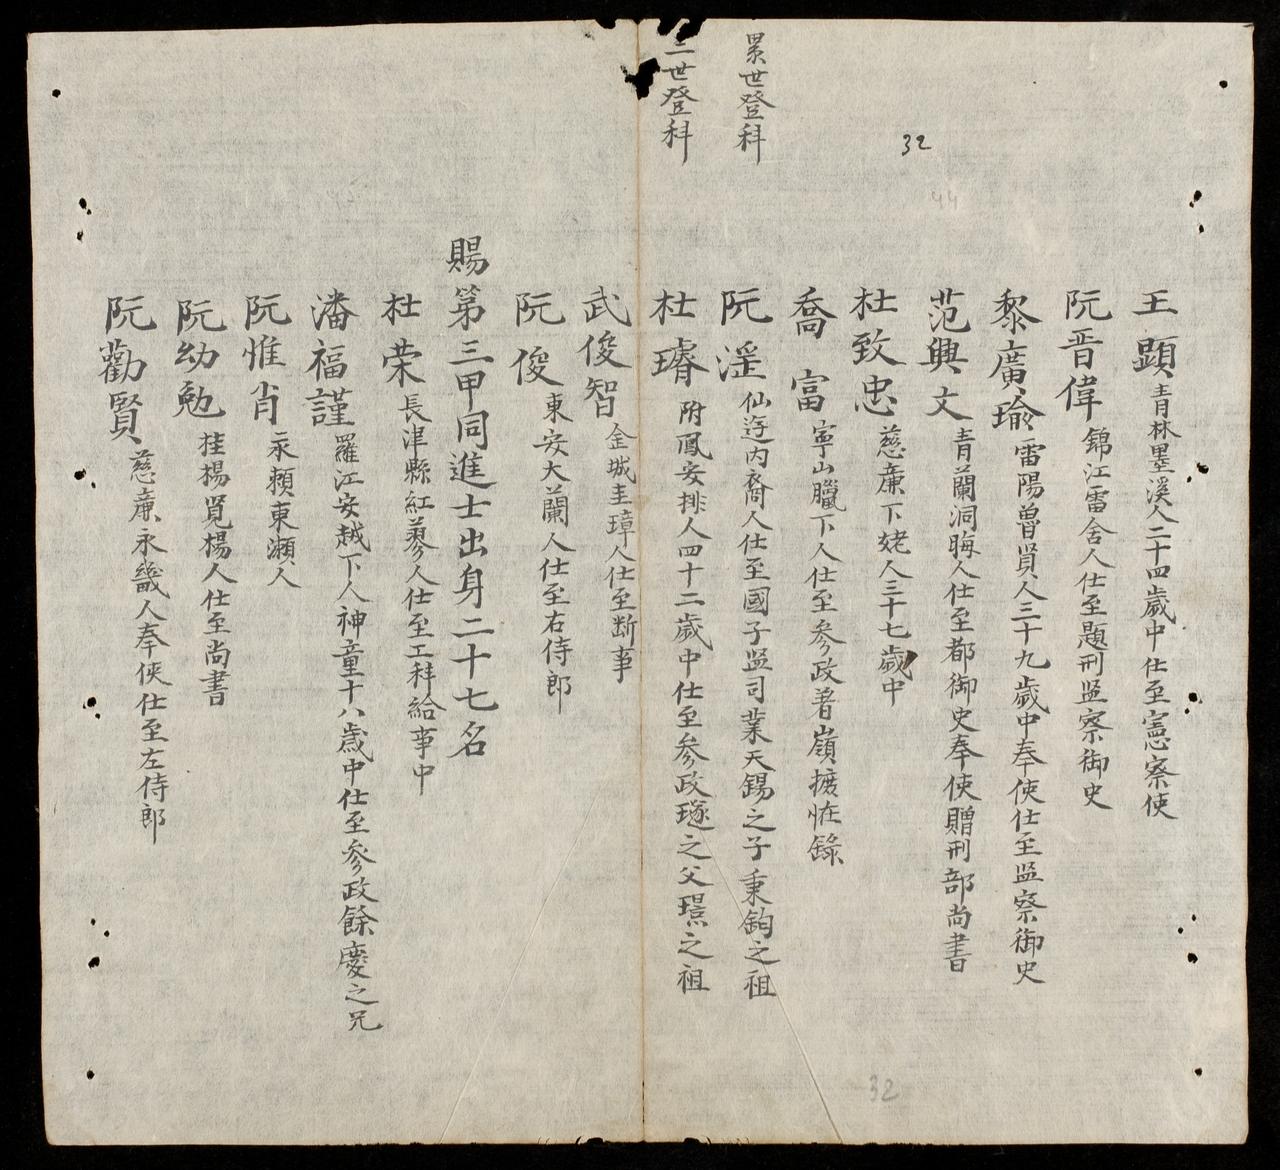 王顕青林墨溪人二十四歲中仕至憲察使
阮晋偉錦江雷舍人仕至題刑监察御史
黎廣瑜雷陽曽貟人三十九歲中奉使仕至监察御史
范興文青蘭洞晦人仕至都御史奉使贈刑部尚書
32
44
杜致忠慈廉下姥人三十七歲中
喬富寕山臘下人仕至参政著嶺摭恠錄
累世登科
阮滛仙逰内裔人仕至國子监司業天錫之子秉鈞之祖
二世登科
杜璿附鳳安排人四十二歲中仕至参政璲之父璟之祖
武俊智金城圭璋人仕至断事
阮俊東安大蘭人仕至右侍郎
賜第三甲同進士出身二十七名
杜荣長津縣紅蓼人仕至工科給事中
潘福謹羅江安越下人神童十八歲中仕至參政餘慶之兄
阮惟肖永頼東瀬人
阮幼勉桂楊覓楊人仕至尚書
阮勸賢慈亷永畿人奉使仕至左侍郎
32